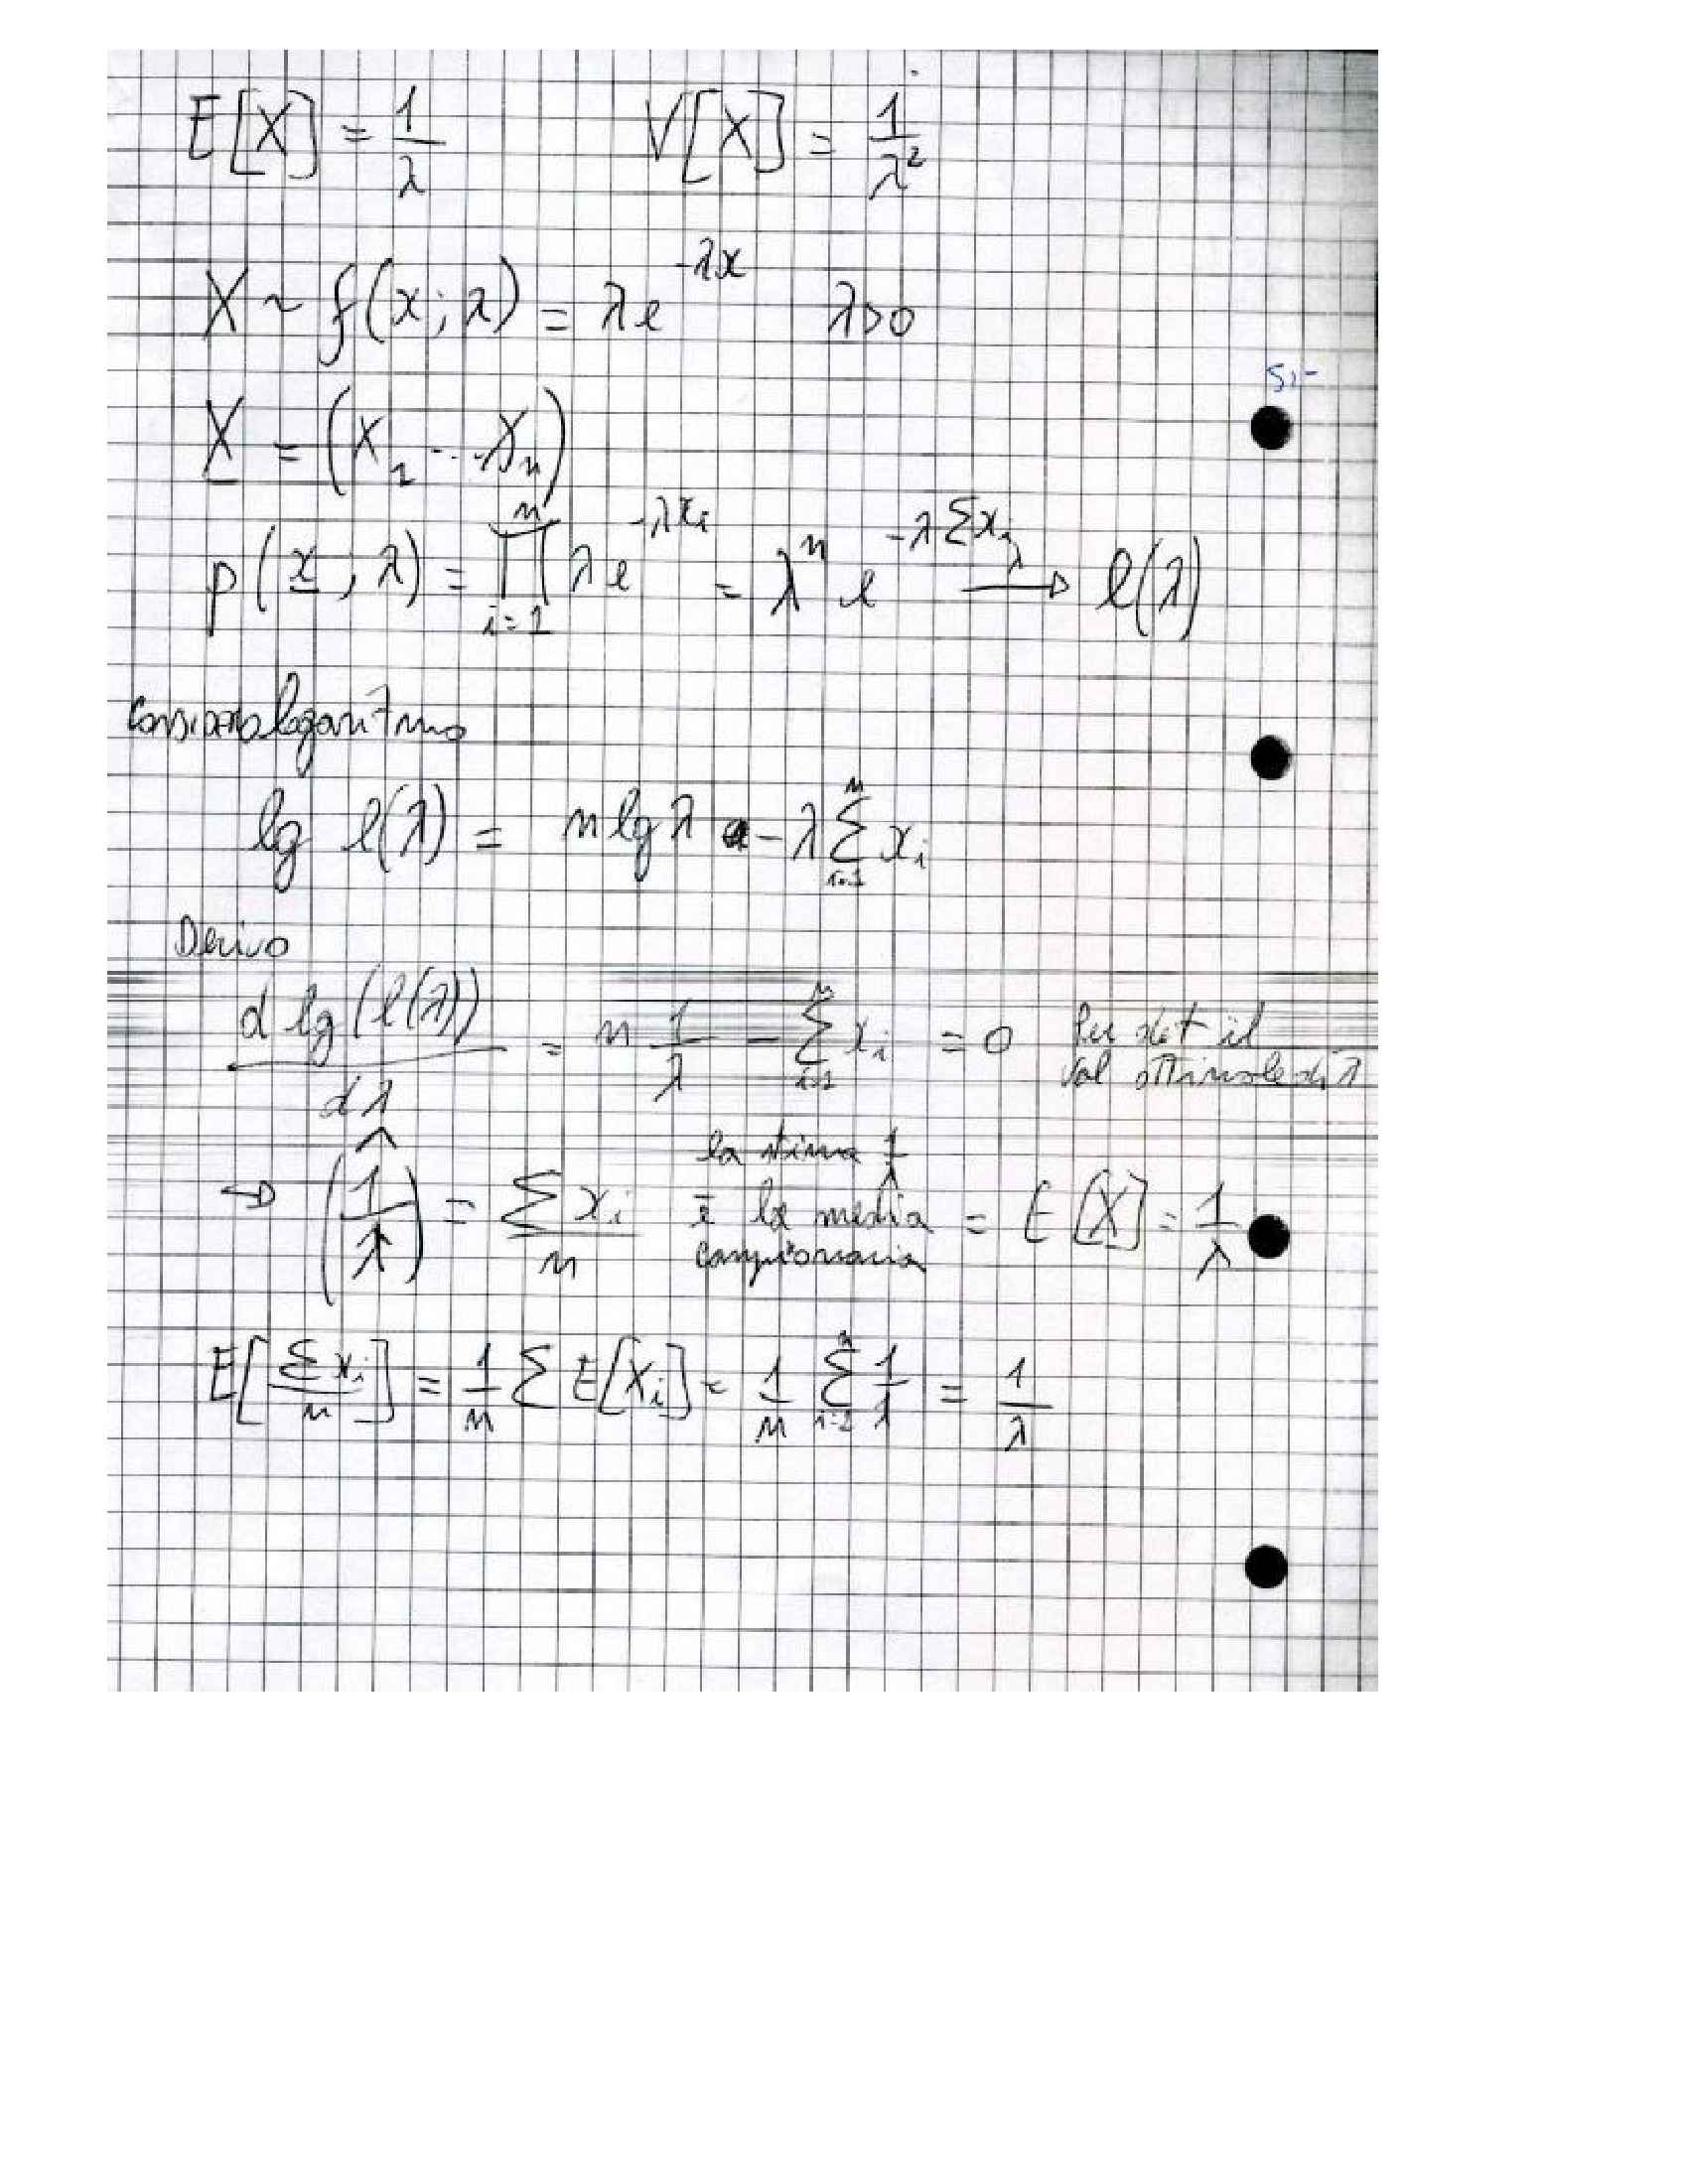 E[X] = 1/λ    V[X] = 1/λ²
X ~ f(x; λ) = λe^{-λx}    λ>0
X = (X₁ ... Xₙ)
p(x; λ) = ∏_{i=1}^{n} λe^{-λxᵢ} = λⁿ e^{-λΣxᵢ} →^{λ} l(λ)
logaritmo
lg l(λ) = n lg λ - λ Σ_{i=1}^{n} xᵢ
Derivo
d lg(l(λ))/dλ = n 1/λ - Σ_{i=1}^{n} xᵢ = 0    Per det il
val ottimale di λ
→ (1/λ)^ = Σxᵢ/n    la stima 1/λ
è la media    = E[X] = 1/λ
campionaria
E[Σxᵢ/n] = 1/n Σ E[Xᵢ] = 1/n Σ_{i=1}^{n} 1/λ = 1/λ